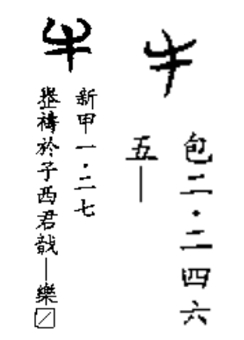 牛
包二・二四六
五—
牛
新甲一・二七
禱於子西君戠—樂☐